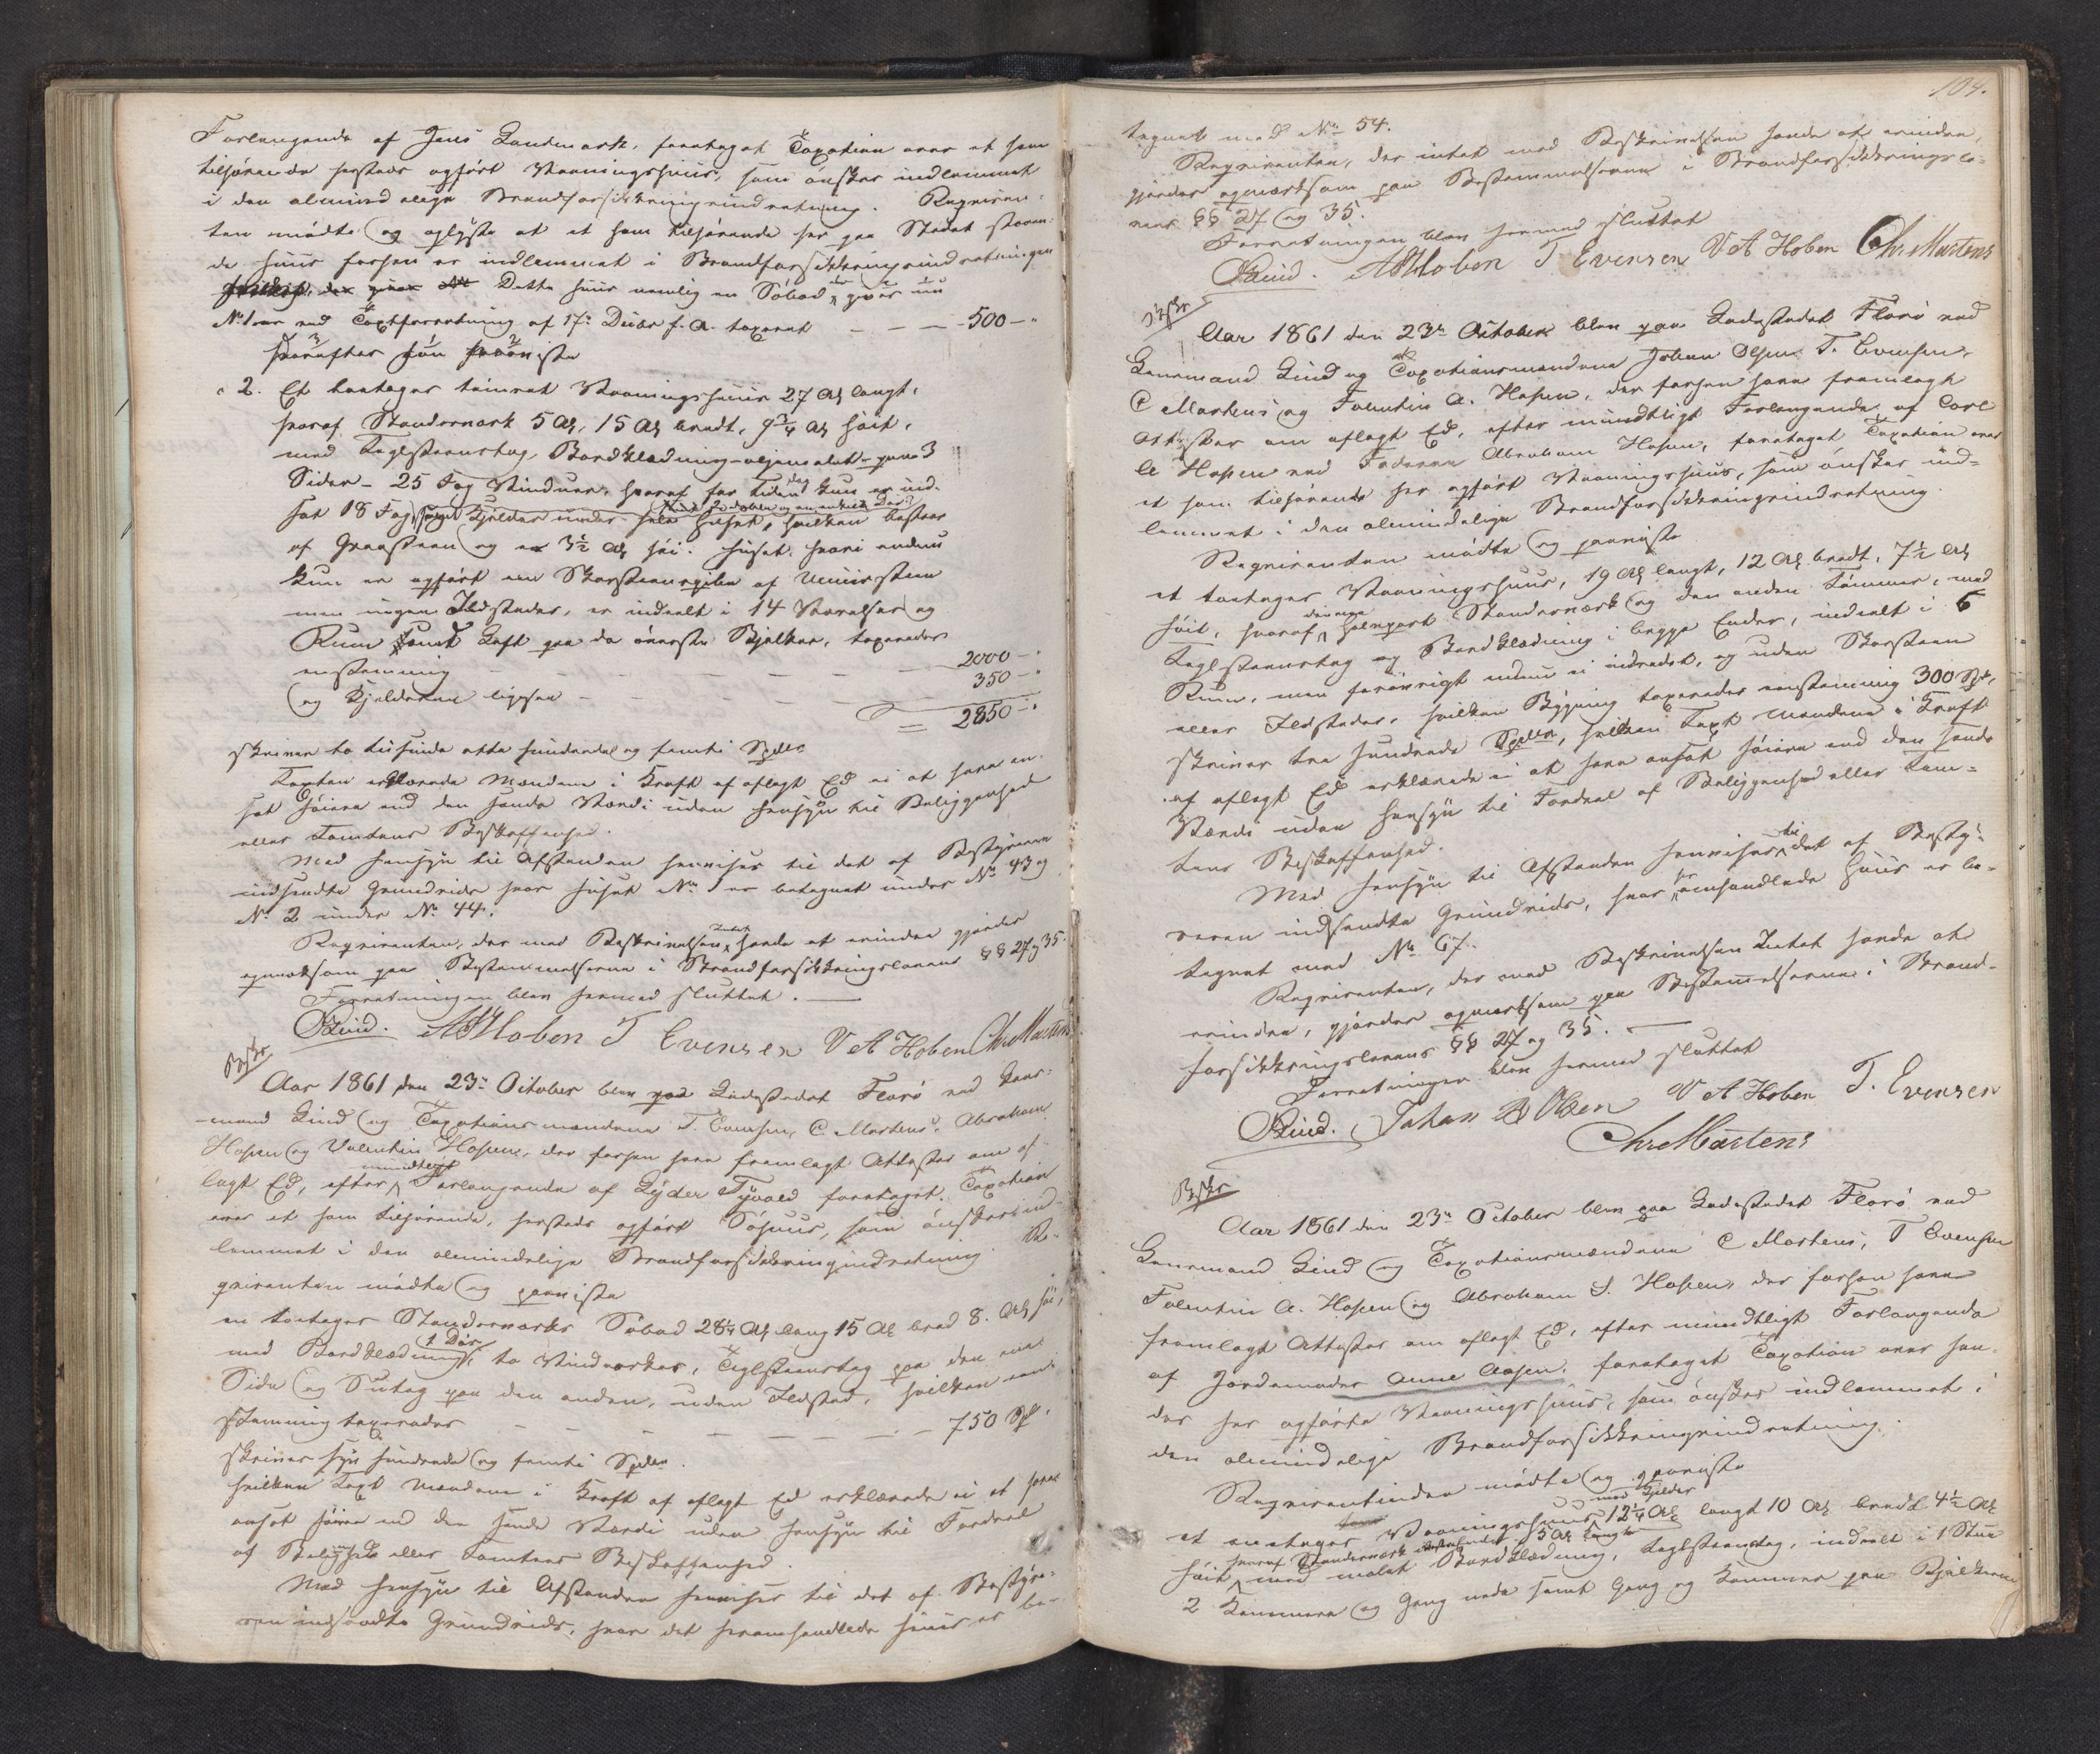 Forlangende af Jens Landmark, foretaget Taxation over et ham
tilhørende hersteds opført Vaaningshuus, som ønskes indlemmet
i den almindelige Brandforsikkringsindretning. Reqviren-
ten mødte og oplyste at et ham tilhørende her paa Stedet staaen-
de Huus forhen er indlemmet i Brandforsikkringsindretningen
Dette Huus nemlig en Søbod
No 1 er ved Taxtforretning af 17de Decbr f. A. taxeret – – – 500 – "
Derefter paaviste
" 2. Et toetages tømret Vaaningshuus 27 Al langt,
hvoraf Standerværk 5 Al, 15 Al bredt, 9 3/4 Al høit,
med Taglsteenstag, Bordklædning oljemalet paa 3
Sider – 25 Fag Vinduer, hvoraf for Tiden kun er ind-
sat 18 Fag, samt Kjelder under hele Huset, hvilken bestaar
af Graasteen og er 3 1/2 Al høi. Huset, hvori endnu
kun er opført en Skorsteenspibe af Muursteen
men ingen Ildsteder, er indeelt i 14 Værelser og
Rum samt Loft paa de øverste Bjelker, taxeredes
eenstemmig – – – – – – 2000 – "
og Kjelderen ligesaa – – – – – 350 – "
= 2850 – "
skriver to tusinde otte hundrede og femti Spdlr
Taxten erklærede Mændene i Kraft af aflagt Ed ei at have an-
sat høiere end den sande Værdi uden Hensyn til Beliggenhed
eller Tomtens Beskaffenhed.
Med Hensyn til Afstanden henvises til det af Bestyreren
indsendte Grundrids hvor Huset No 1 er betegnet under No 43 og
No 2 under No 44.
Reqvirenten, der mod Beskrivelsen Intet havde at erindre gjordes
opmærksom paa Bestemmelserne i Brandforsikkringslovens §§ 27 og 35.
Forretningen blev hermed sluttet. –
Lind. A S Hoben T Evensen V A Hoben Chr Martens
Beskr
Aar 1861 den 23de October blev paa Ladestedet Florø ved Lens-
mand Lind og Taxationsmændene T. Evensen, C. Martens, Abraham
Hopen og Valentin Hopen, der forhen have fremlagt Attester om af-
lagt Ed, efter mundtligt Forlangende af Lyder foretaget Taxation
over et ham tilhørende, hersteds opført Søhuus, som ønskes ind-
lemmet i den almindelige Brandforsikkringsindretning. Re-
qvirenten mødte og paaviste
en toetages Standerværks Søbod 28 1/4 Al lang 15 Al bred 8. Al høi,
med Bordklædning, 1 Dør, to Vindesker, Taglsteenstag paa den ene
Side og Sutag paa den anden, uden Ildsted, hvilken een-
stemmig taxeredes – – – – – – 750 Spd.
skriver syv hundrede og femti Spdlr.
hvilken Taxt Mændene i Kraft af aflagt Ed erklærede ei at have
ansat høiere end den sande Værdi uden Hensyn til Fordeel
af Beliggenhed eller Tomtens Beskaffenhed.
Med Hensyn til Afstanden henvises til det af Bestyre-
ren indsendte Grundrids, hvor det heromhandlede Huus er be-
104.
tegnet med No 54.
Reqvirenten, der intet mod Beskrivelsen havde at erindre,
gjordes opmærksom paa Bestemmelserne i Brandforsikkringslo-
vens §§ 27 og 35.
Forretningen blev hermed sluttet
Lind. A S Hoben T Evensen V A Hoben Chr. Martens
Beskr
Aar 1861 den 23de October blev paa Ladestedet Florø ved
Lensmand Lind og Taxationsmændene Johan Olsen T. Evensen,
C Martens og Falentin A. Hopen, der forhen have fremlagt
Attester om aflagt Ed, efter mundtligt Forlangende af Carl
A Hopen ved Faderen Abraham Hopen, foretaget Taxation over
et ham tilhørende her opført Vaaningshuus, som ønskes ind-
lemmet i den almindelige Brandforsikkringsindretning.
Reqvirenten mødte og paaviste
et toetages Vaaningshuus, 19 Al langt, 12 Al bredt, 7 1/2 Al
høit, hvoraf den ene Halvpart Standerværk og den anden Tømmer, med
Taglsteenstag og Bordklædning i begge Ender, indeelt i 6
Rum, men forøvrigt endnu ei indredet, og uden Skorsteen
eller Ildsteder, hvilken Bygning taxeredes eenstemmig 300 Spd,
skriver tre hundrede Spdlr, hvilken Taxt Mændene i Kraft
af aflagt Ed erklærede ei at have ansat høiere end den sande
Værdi uden Hensyn til Fordeel af Beliggenhed eller Tom-
tens Beskaffenhed.
Med Hensyn til Afstanden henvises til det af Besty-
reren indsendte Grundrids, hvor heromhandlede Huus er be-
tegnet med No 67.
Reqvirenten, der mod Beskrivelsen Intet havde at
erindre, gjordes opmærksom paa Bestemmelserne i Brand-
forsikkringslovens §§ 27 og 35. –
Forretningen blev hermed sluttet
Lind. Johan Olsen V A Hoben T. Evensen
Chr Martens
Beskr
Aar 1861 den 23de October blev paa Ladestedet Florø ved
Lensmand Lind og Taxationsmændene C Martens, T Evensen
Falentin A. Hopen og Abraham S. Hopen, der forhen have
fremlagt Attester om aflagt Ed, efter mundtligt Forlangende
af Jordemoder Anne Aasen, foretaget Taxation over hen-
des her opførte Vaaningshuus, som ønskes indlemmet i
den almindelige Brandforsikkringsindretning.
Reqvirentinden mødte og paaviste
et eenetages Vaaningshuus med Kjelder 12 1/4 Al langt 10 Al bredt 4 1/2 Al
høit, hvoraf Standerværk 5 Al langt med malet Bordklædning, Taglsteenstag, indeelt i 1 Stue
2 Kammere og Gang nede samt Gang og Kammer paa Bjelkerne